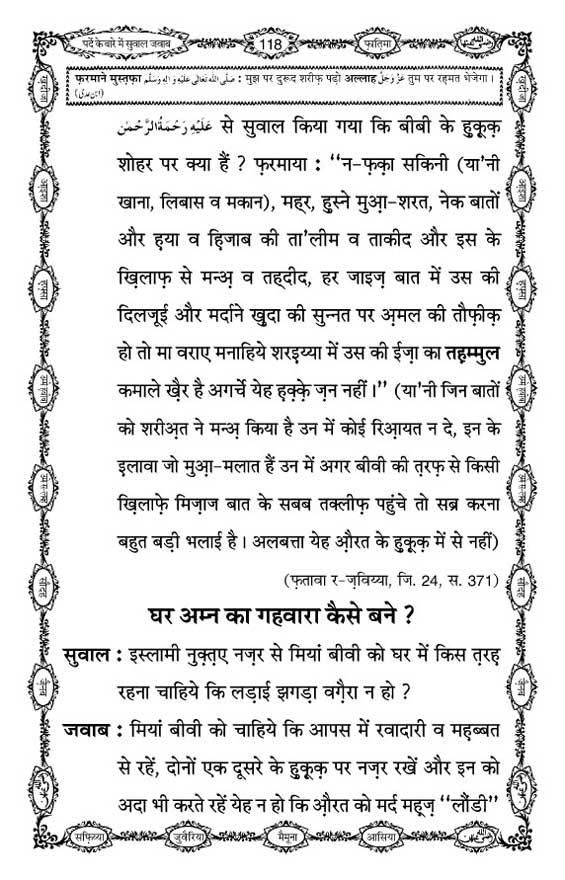 पर्दे के बारे में सुवाल जवाब
118
फ़ातिमा
फ़रमाने मुस्तफ़ा صَلَّى اللّٰهُ تَعَالٰى عَلَيْهِ وَاٰلِهٖ وَسَلَّم : मुझ पर दुरूद शरीफ़ पढ़ो अल्लाह عَزَّوَجَلَّ तुम पर रहमत भेजेगा।
(ابن عدی)
عَلَيْهِ رَحْمَةُ الرَّحْمٰن से सुवाल किया गया कि बीबी के हुक़ूक़
शोहर पर क्या हैं ? फ़रमाया : ‘‘न-फ़क़ा सकिनी (या'नी
खाना, लिबास व मकान), महर, हुस्ने मुआ़-शरत, नेक बातों
और ह़या व ह़िजाब की ता'लीम व ताकीद और इस के
ख़िलाफ़ से मन्अ़ व तहदीद, हर जाइज़ बात में उस की
दिलजूई और मर्दाने ख़ुदा की सुन्नत पर अ़मल की तौफ़ीक़
हो तो मा वराए मनाहिये शरइय्या में उस की ईज़ा का तह़म्मुल
कमाले ख़ैर है अगर्चे येह ह़क़्क़े ज़न नहीं।’’ (या'नी जिन बातों
को शरीअ़त ने मन्अ़ किया है उन में कोई रिआ़यत न दे, इन के
इ़लावा जो मुआ़-मलात हैं उन में अगर बीवी की त़रफ़ से किसी
ख़िलाफ़े मिज़ाज बात के सबब तक्लीफ़ पहुंचे तो सब्र करना
बहुत बड़ी भलाई है। अलबत्ता येह औ़रत के हुक़ूक़ में से नहीं)
(फ़तावा र-ज़विय्या, जि. 24, स. 371)
घर अम्न का गहवारा कैसे बने ?
सुवाल : इस्लामी नुक़्त़ए नज़र से मियां बीवी को घर में किस त़रह़
रहना चाहिये कि लड़ाई झगड़ा वग़ैरा न हो ?
जवाब : मियां बीवी को चाहिये कि आपस में रवादारी व मह़ब्बत
से रहें, दोनों एक दूसरे के हुक़ूक़ पर नज़र रखें और इन को
अदा भी करते रहें येह न हो कि औ़रत को मर्द मह़ूज़ ‘‘लौंडी’’
सफ़िय्या
जुवैरिया
मैमूना
आसिया